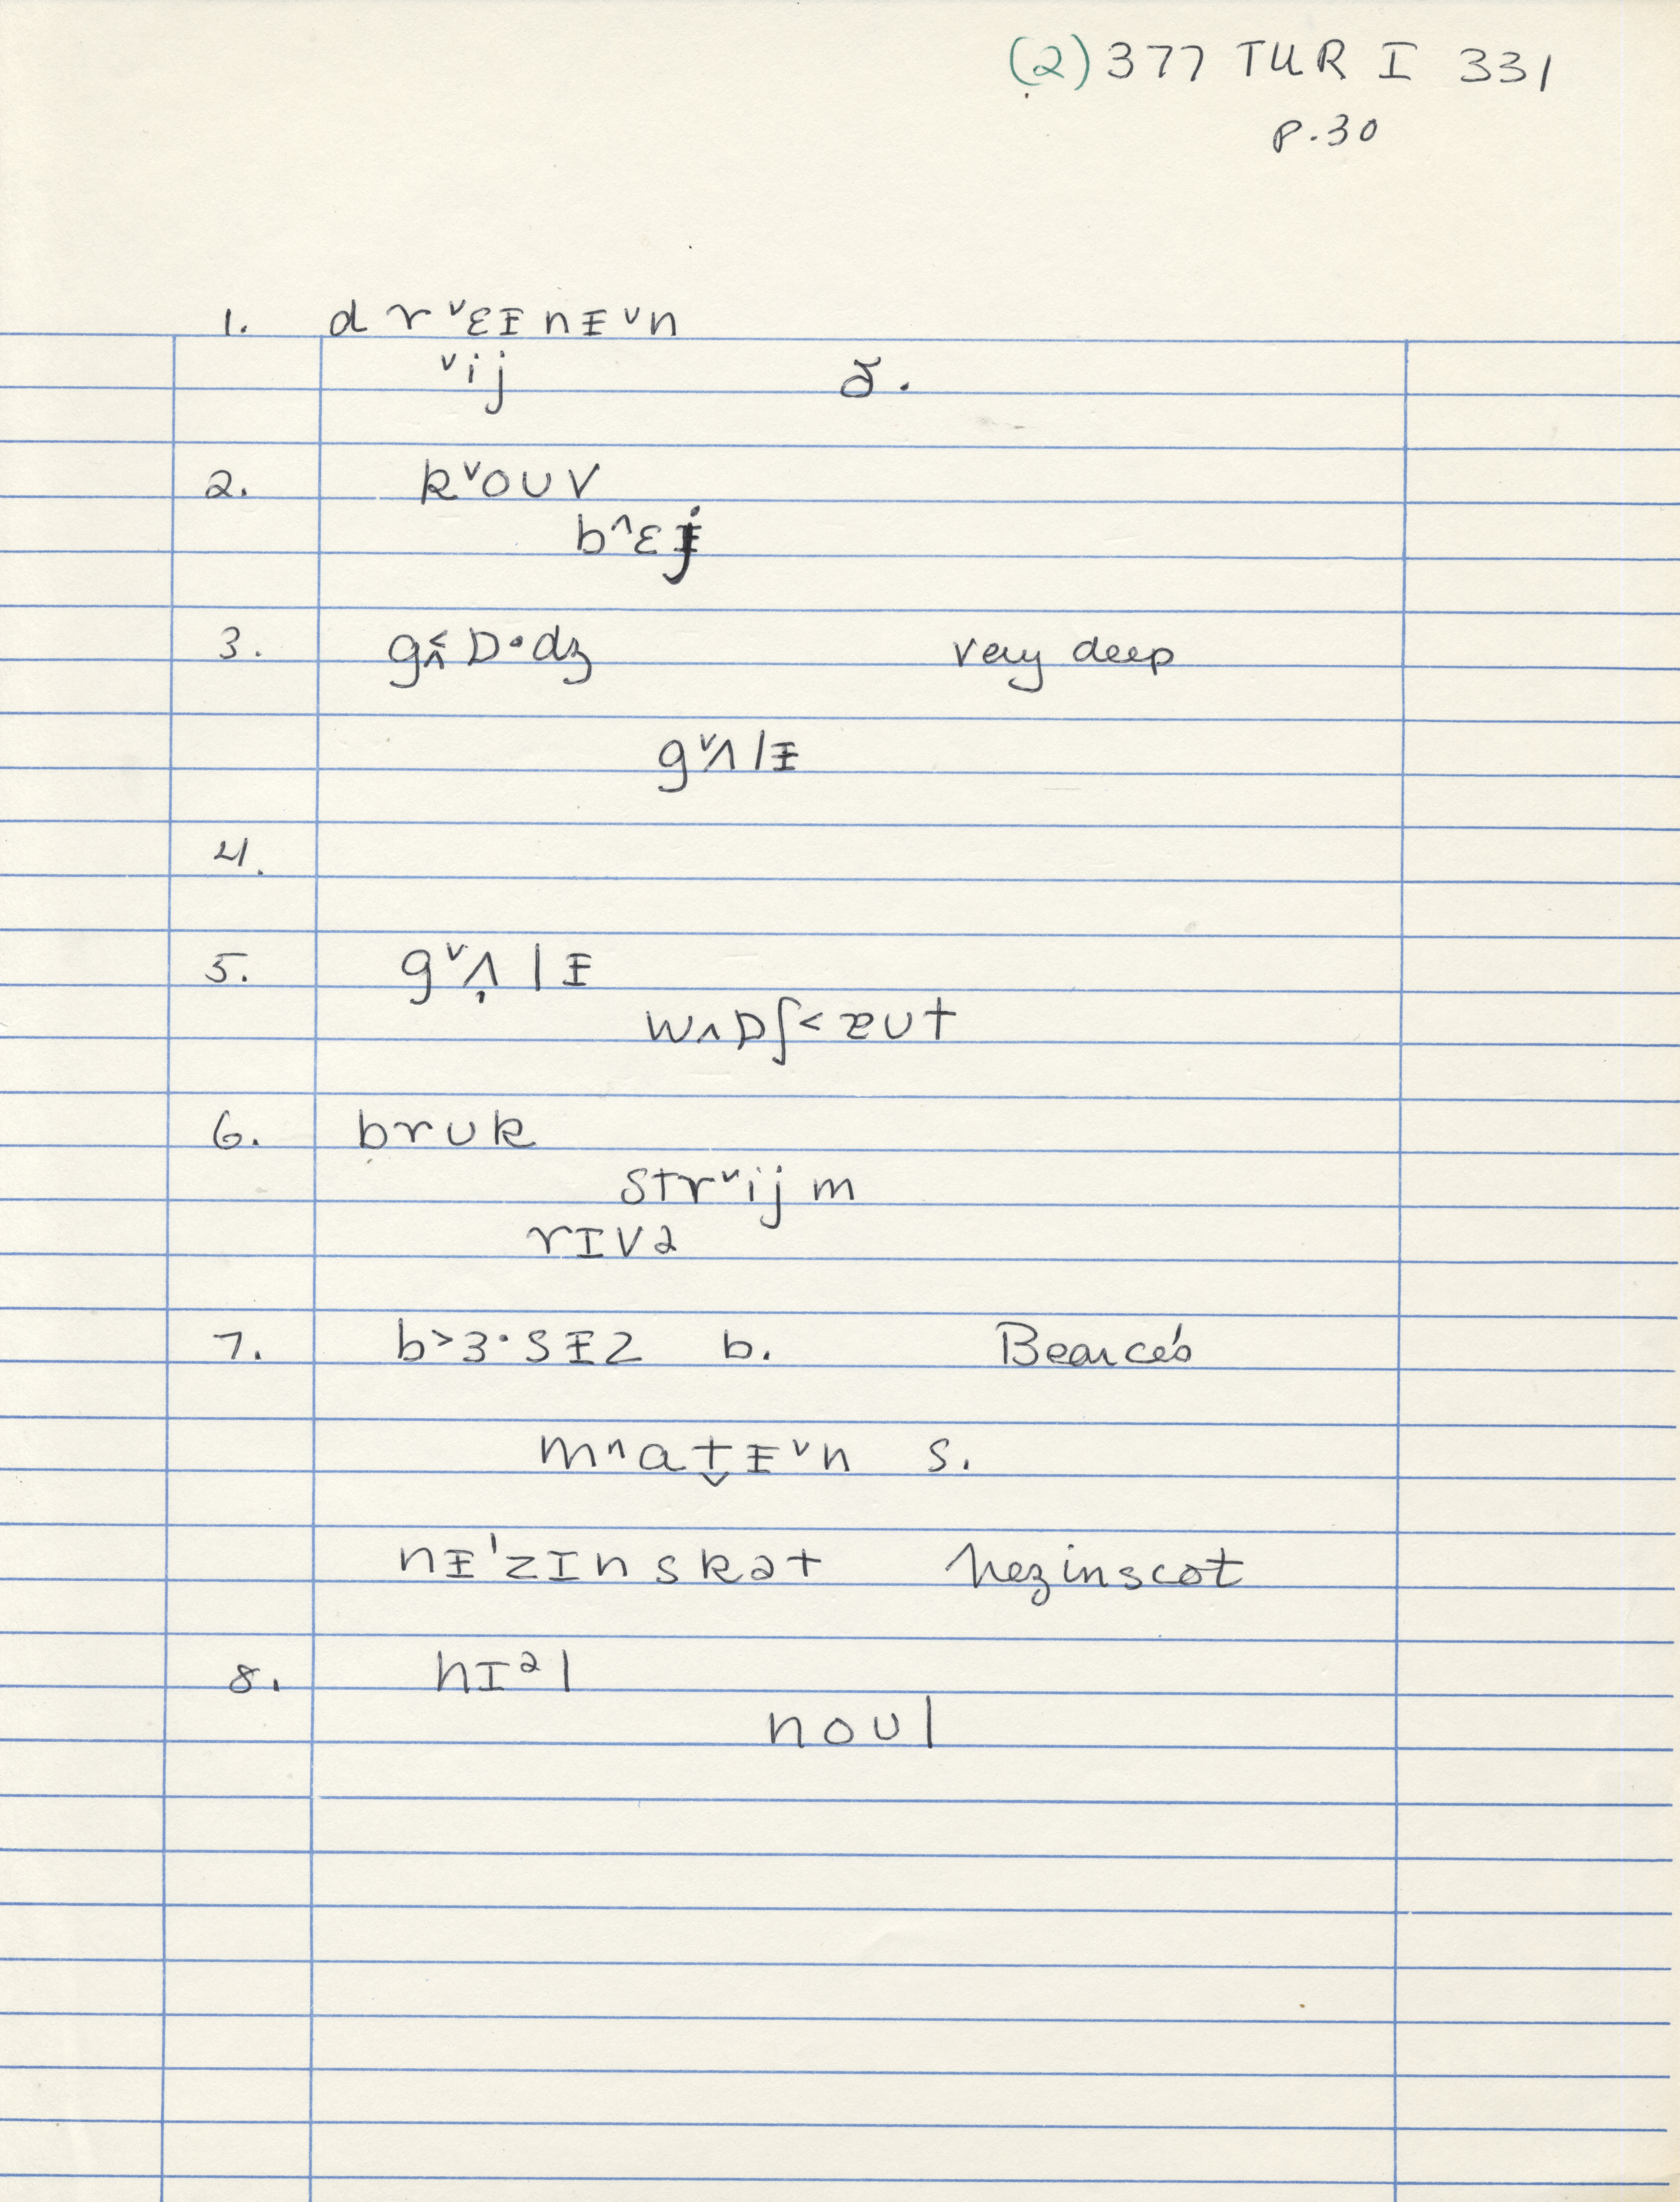 (2) 377 TUR I 331
p. 30
1. d r ˅ɛᵻ n ᵻ ˅n
˅ij ð.
2. k˅oʊv
b^ɛj
3. g ɒ·dʒ very deep
g˅ʌlᵻ
4.
5. g˅ʌ̣lᵻ
w˄ɒʃ<æʊt
6. brʊk
str˅ijm
rɪvə
7. b>ɜ·sᵻz b. Bearce's
m^at̬ᵻ˅n s.
nᵻ'zɪnskət Nezinscot
8. hɪᵊl
noʊl